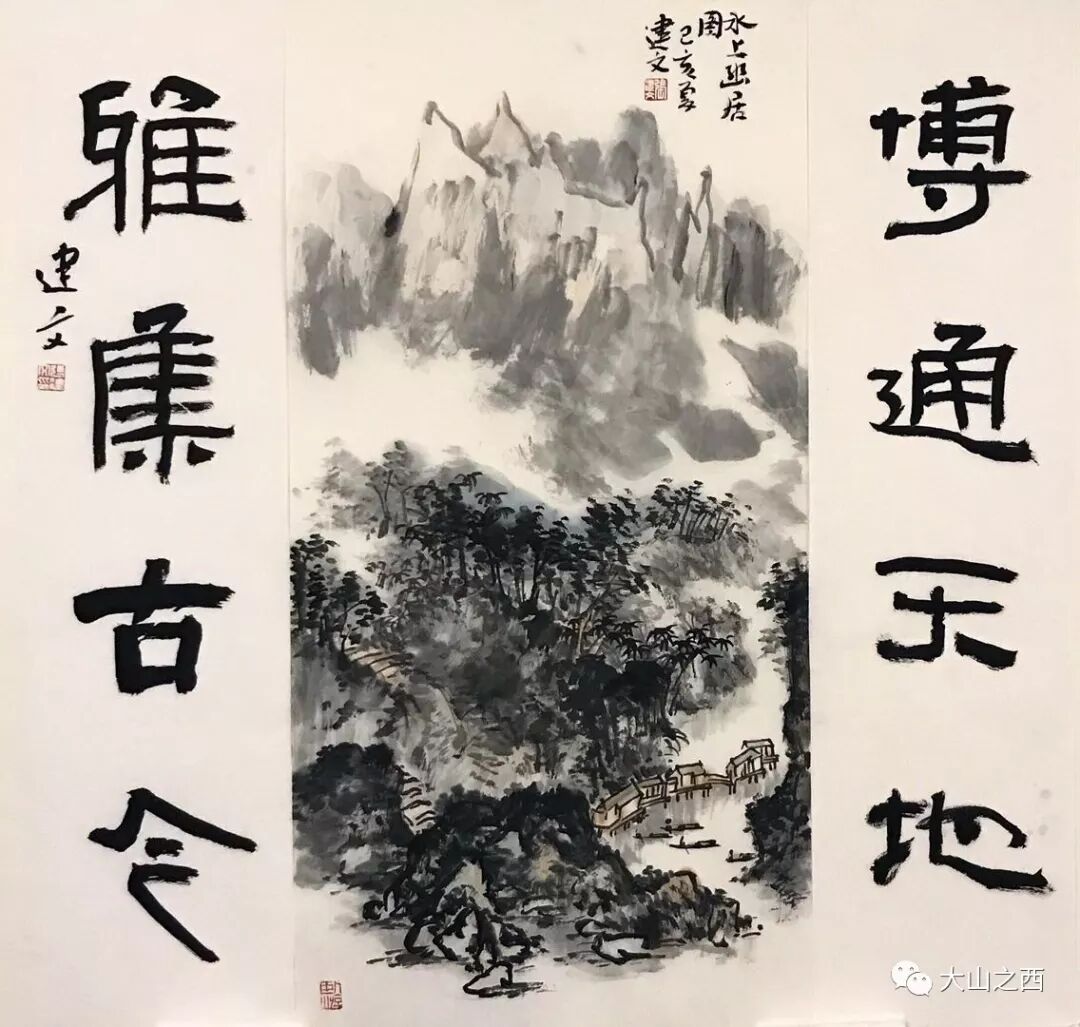 博通天地
水上幽居
图
己亥夏
建文
雅集古今
建文
大山之西